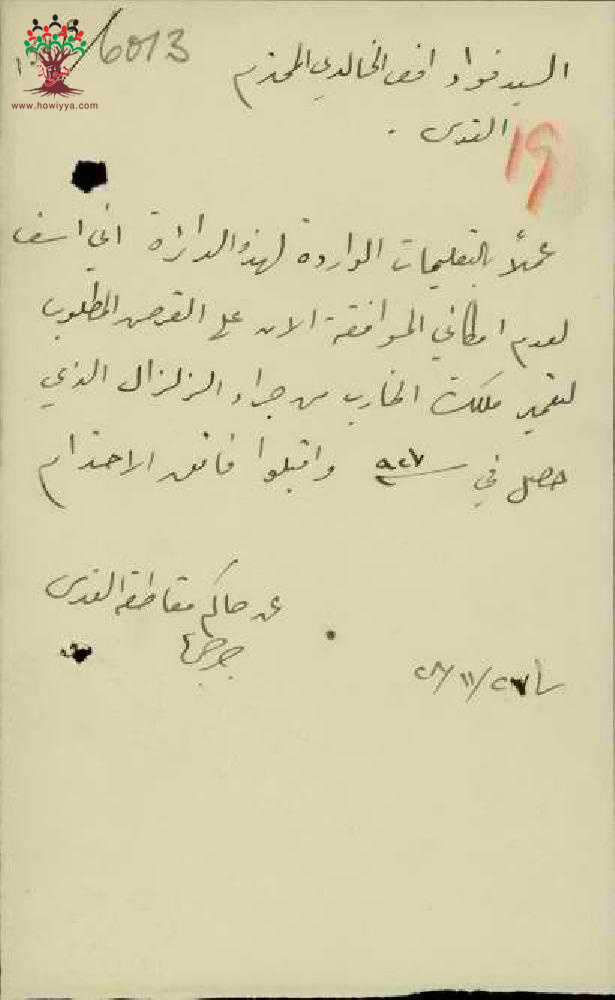 6013
www.howiyya.com
السيد فؤاد افندي الخالدي المحترم
القدس .
19
عملاً بالتعليمات الواردة لهذه الدائرة اني اسف
لعدم امكاني الموافقة الان على القرض المطلوب
لتعمير ملكك الخارب من جراء الزلزال الذي
حصل في سنة ٩٢٧ واقبلوا فائق الاحترام
عن حاكم مقاطعة القدس